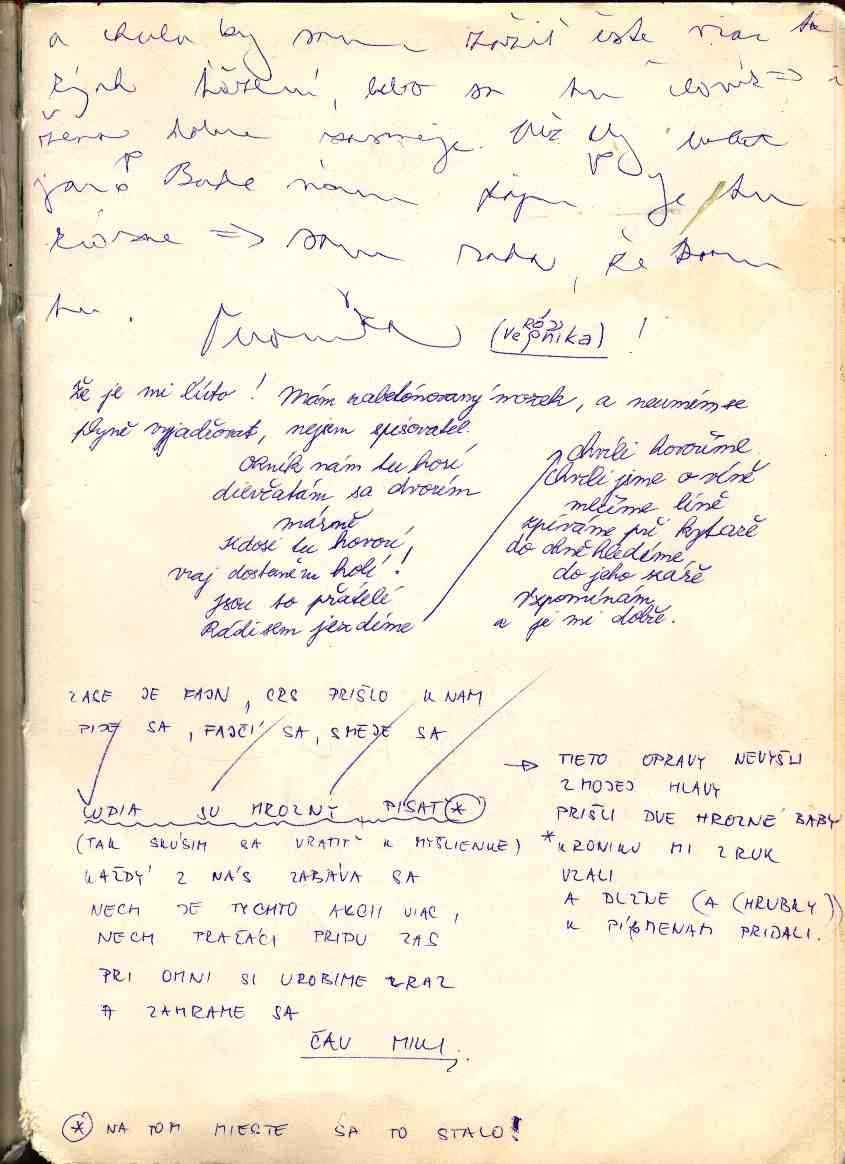 a chcela by som zažiť ešte viac ta
kých tu človek => i
žena dobre zasmeje. Už aby bolo
jaro Bude nám fajn je tu
=> som rada, že som
tu.
Veronika (Veronika) !
RÓZ
Že je mi líuto! Mám zabetónovaný mozek, a neumím se
plyně vyjadřovat, nejsem spisovatel.
Ohník nám tu horí
dievčatám sa dvorím
márně
kdosi tu hovorí,
vraj dostaném holí!
jsou to přátelé
Rádi sem jezdíme
chvíli hovoříme
chvíli jsme o vlně
mlčíme líně
zpíváme při kytaře
do ohně hledíme
do jeho záře
Vzpomínám
a je mi dobře.
ZASE JE FAJN, CRS PRIŠLO K NAM
PIJE SA, FAJČÍ SA, SMEJE SA
ĽUDIA SU HROZNÝ PISAŤ *
(TAK SKÚSIM SA VRATIŤ K MYŠLIENKE)
KAŽDÝ Z NÁS ZABÁVA SA
NECH JE TYCHTO AKCII VIAC,
NECH PRAŽÁCI PRIDU ZAS
PRI OHNI SI UROBIME ZRAZ
A ZAHRAME SA
ČAU MIKI.
→ TIETO OPRAVY NEVYŠLI
Z MOJEJ HLAVY
PRIŠLI DVE HROZNÉ BABY
* KRONIKU MI Z RUK
VZALI
A DLZNE (A (HRUBKY))
K PÍSMENAM PRIDALI.
* NA TOM MIESTE SA TO STALO!